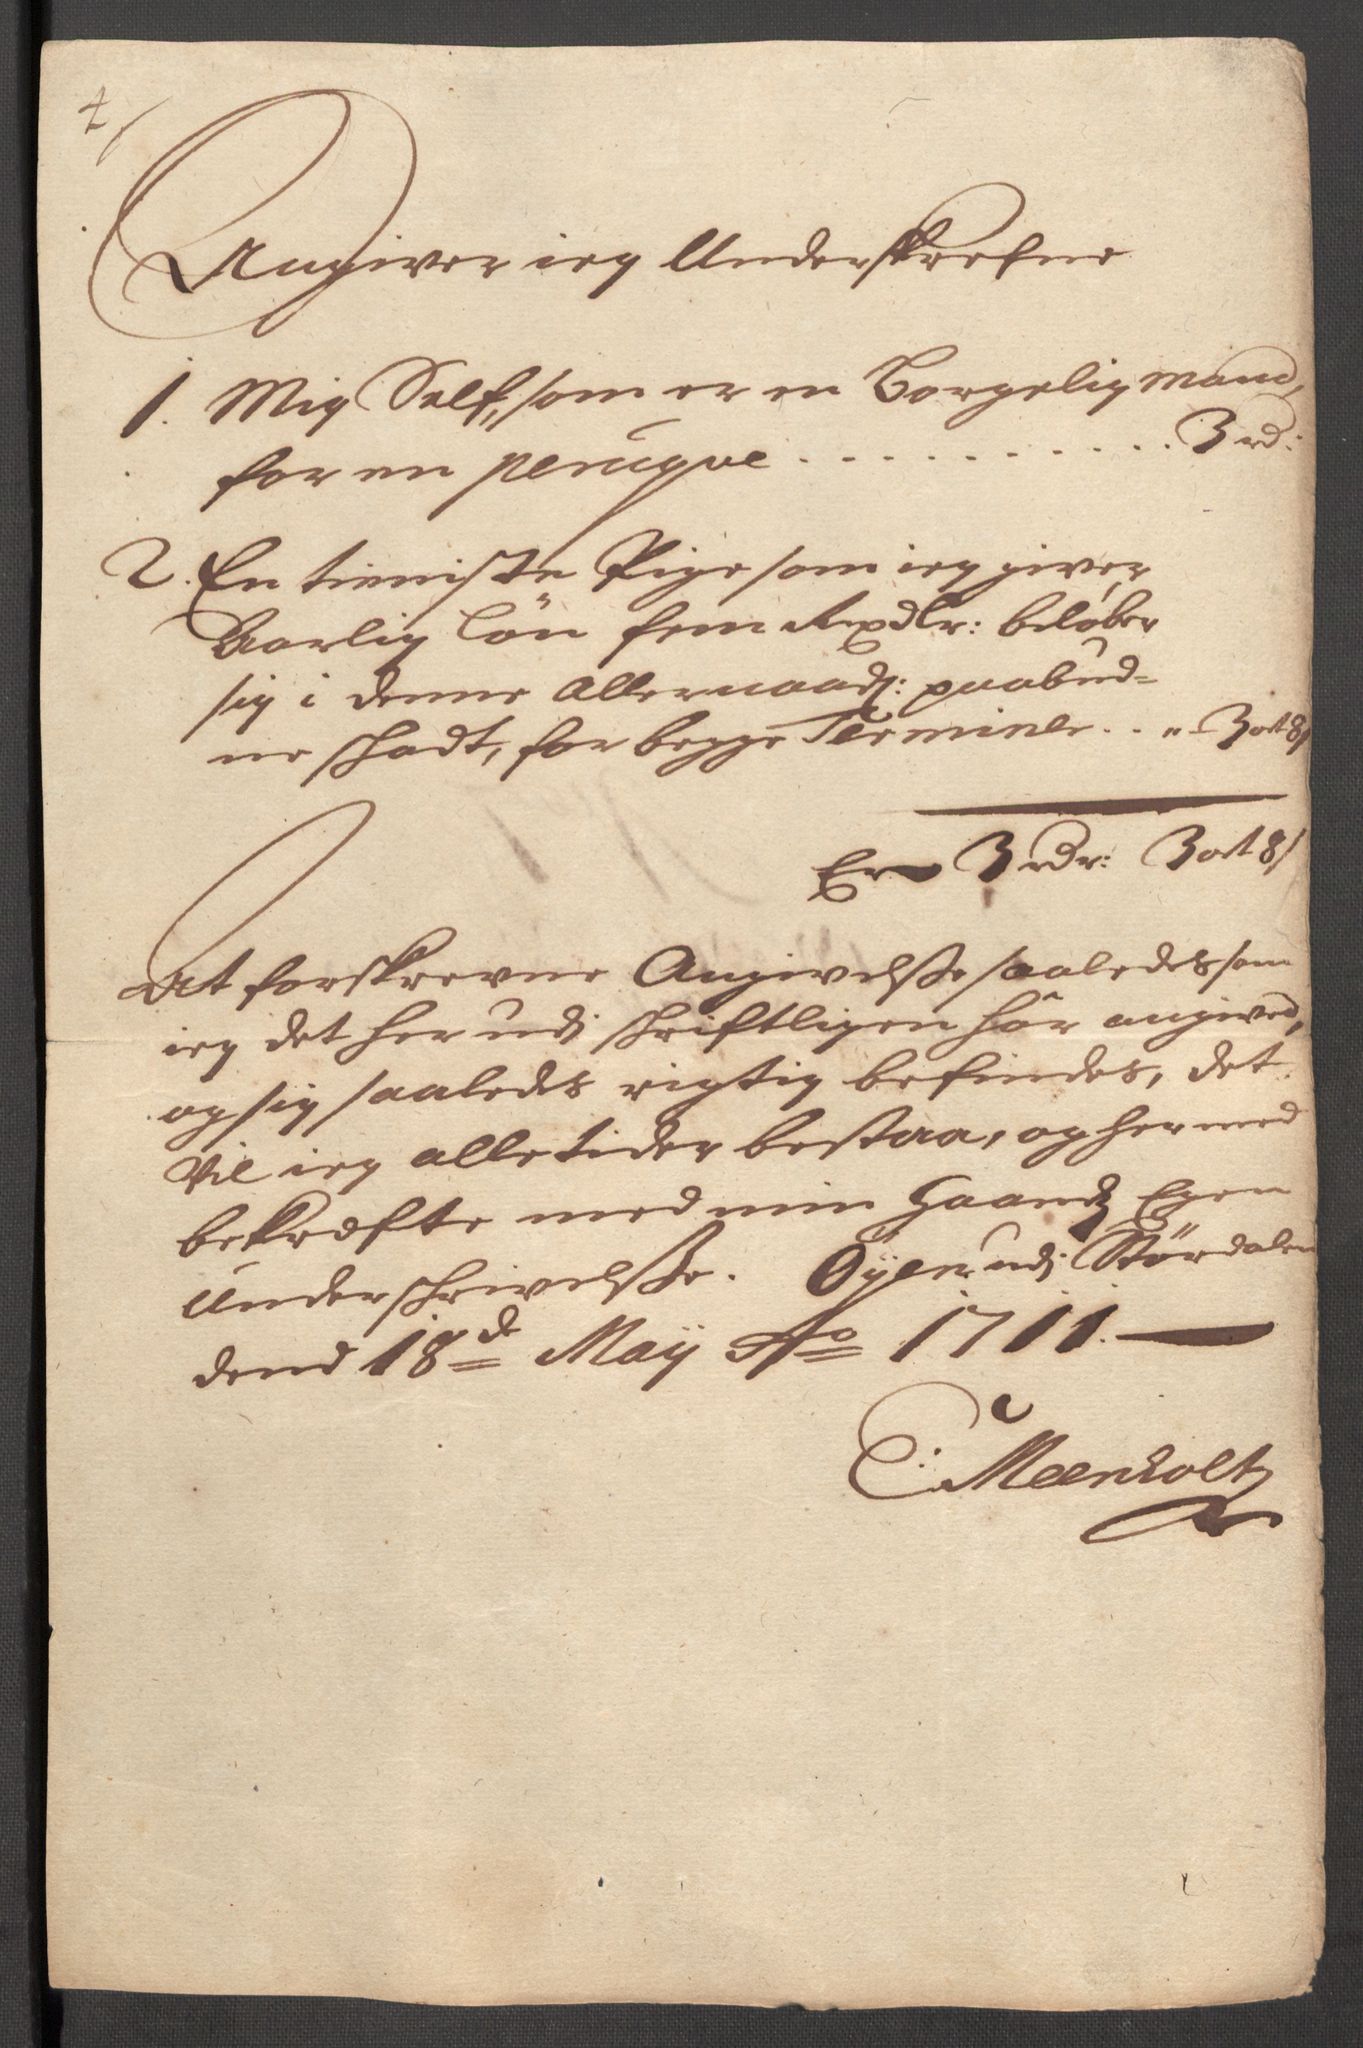 Angiver ieg Underskrefne
1. Mig Self, som er en Borgelig mand,
for en peruqve . . . . . . . . . . . 3 rd:
2. En tieniste Pige som ieg giver
Aarlig Lön fem Rixdlr: beløber
sig i denne Allernaads: paabud-
ne schadt, for begge Terminer . . „ - 3 ort 8 s
Er 3 rdr: 3 ort 8 s
At forskrevne Angivelsse saaledes som
ieg det her udj schriftligen hår angived,
og sig saaledes rigtig befindes, det
Vil ieg alle tider bestaa, og her med
bekræfte med min Haands Egen
Underschrivelsse. Öyen udj Størdalen
dend 18de May Ao 1711.
C: Meenholt